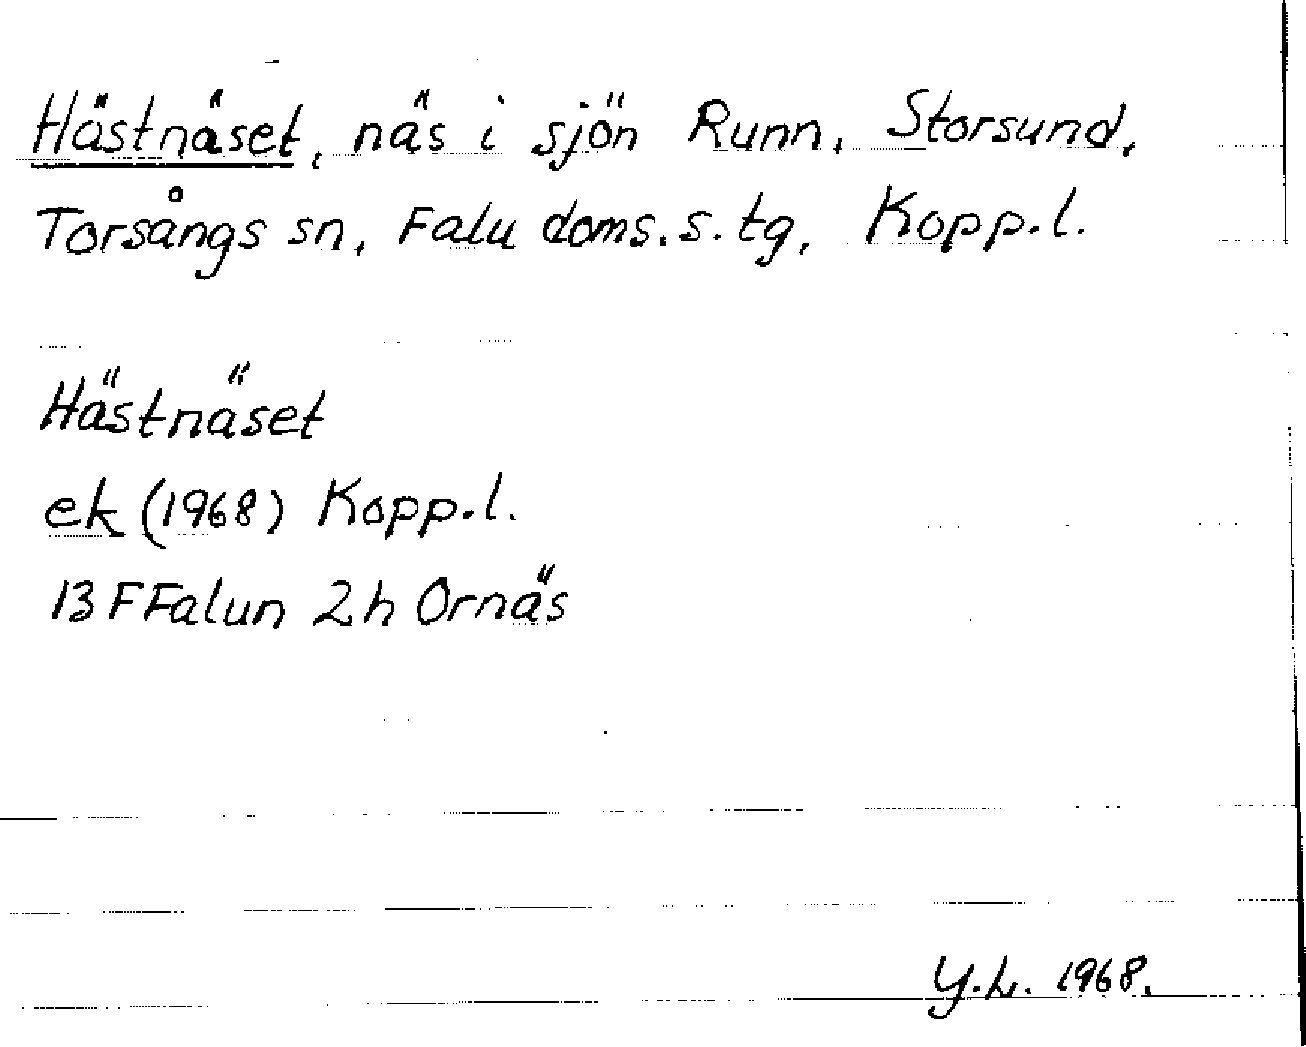 Hästnäset, näs i sjön Runn, Storsund,
Torsångs sn, Falu doms.s. tg, Kopp.l.
Hästnäset
ek (1968) Kopp.l.
13 F Falun 2h Ornäs
Y.L. 1968.